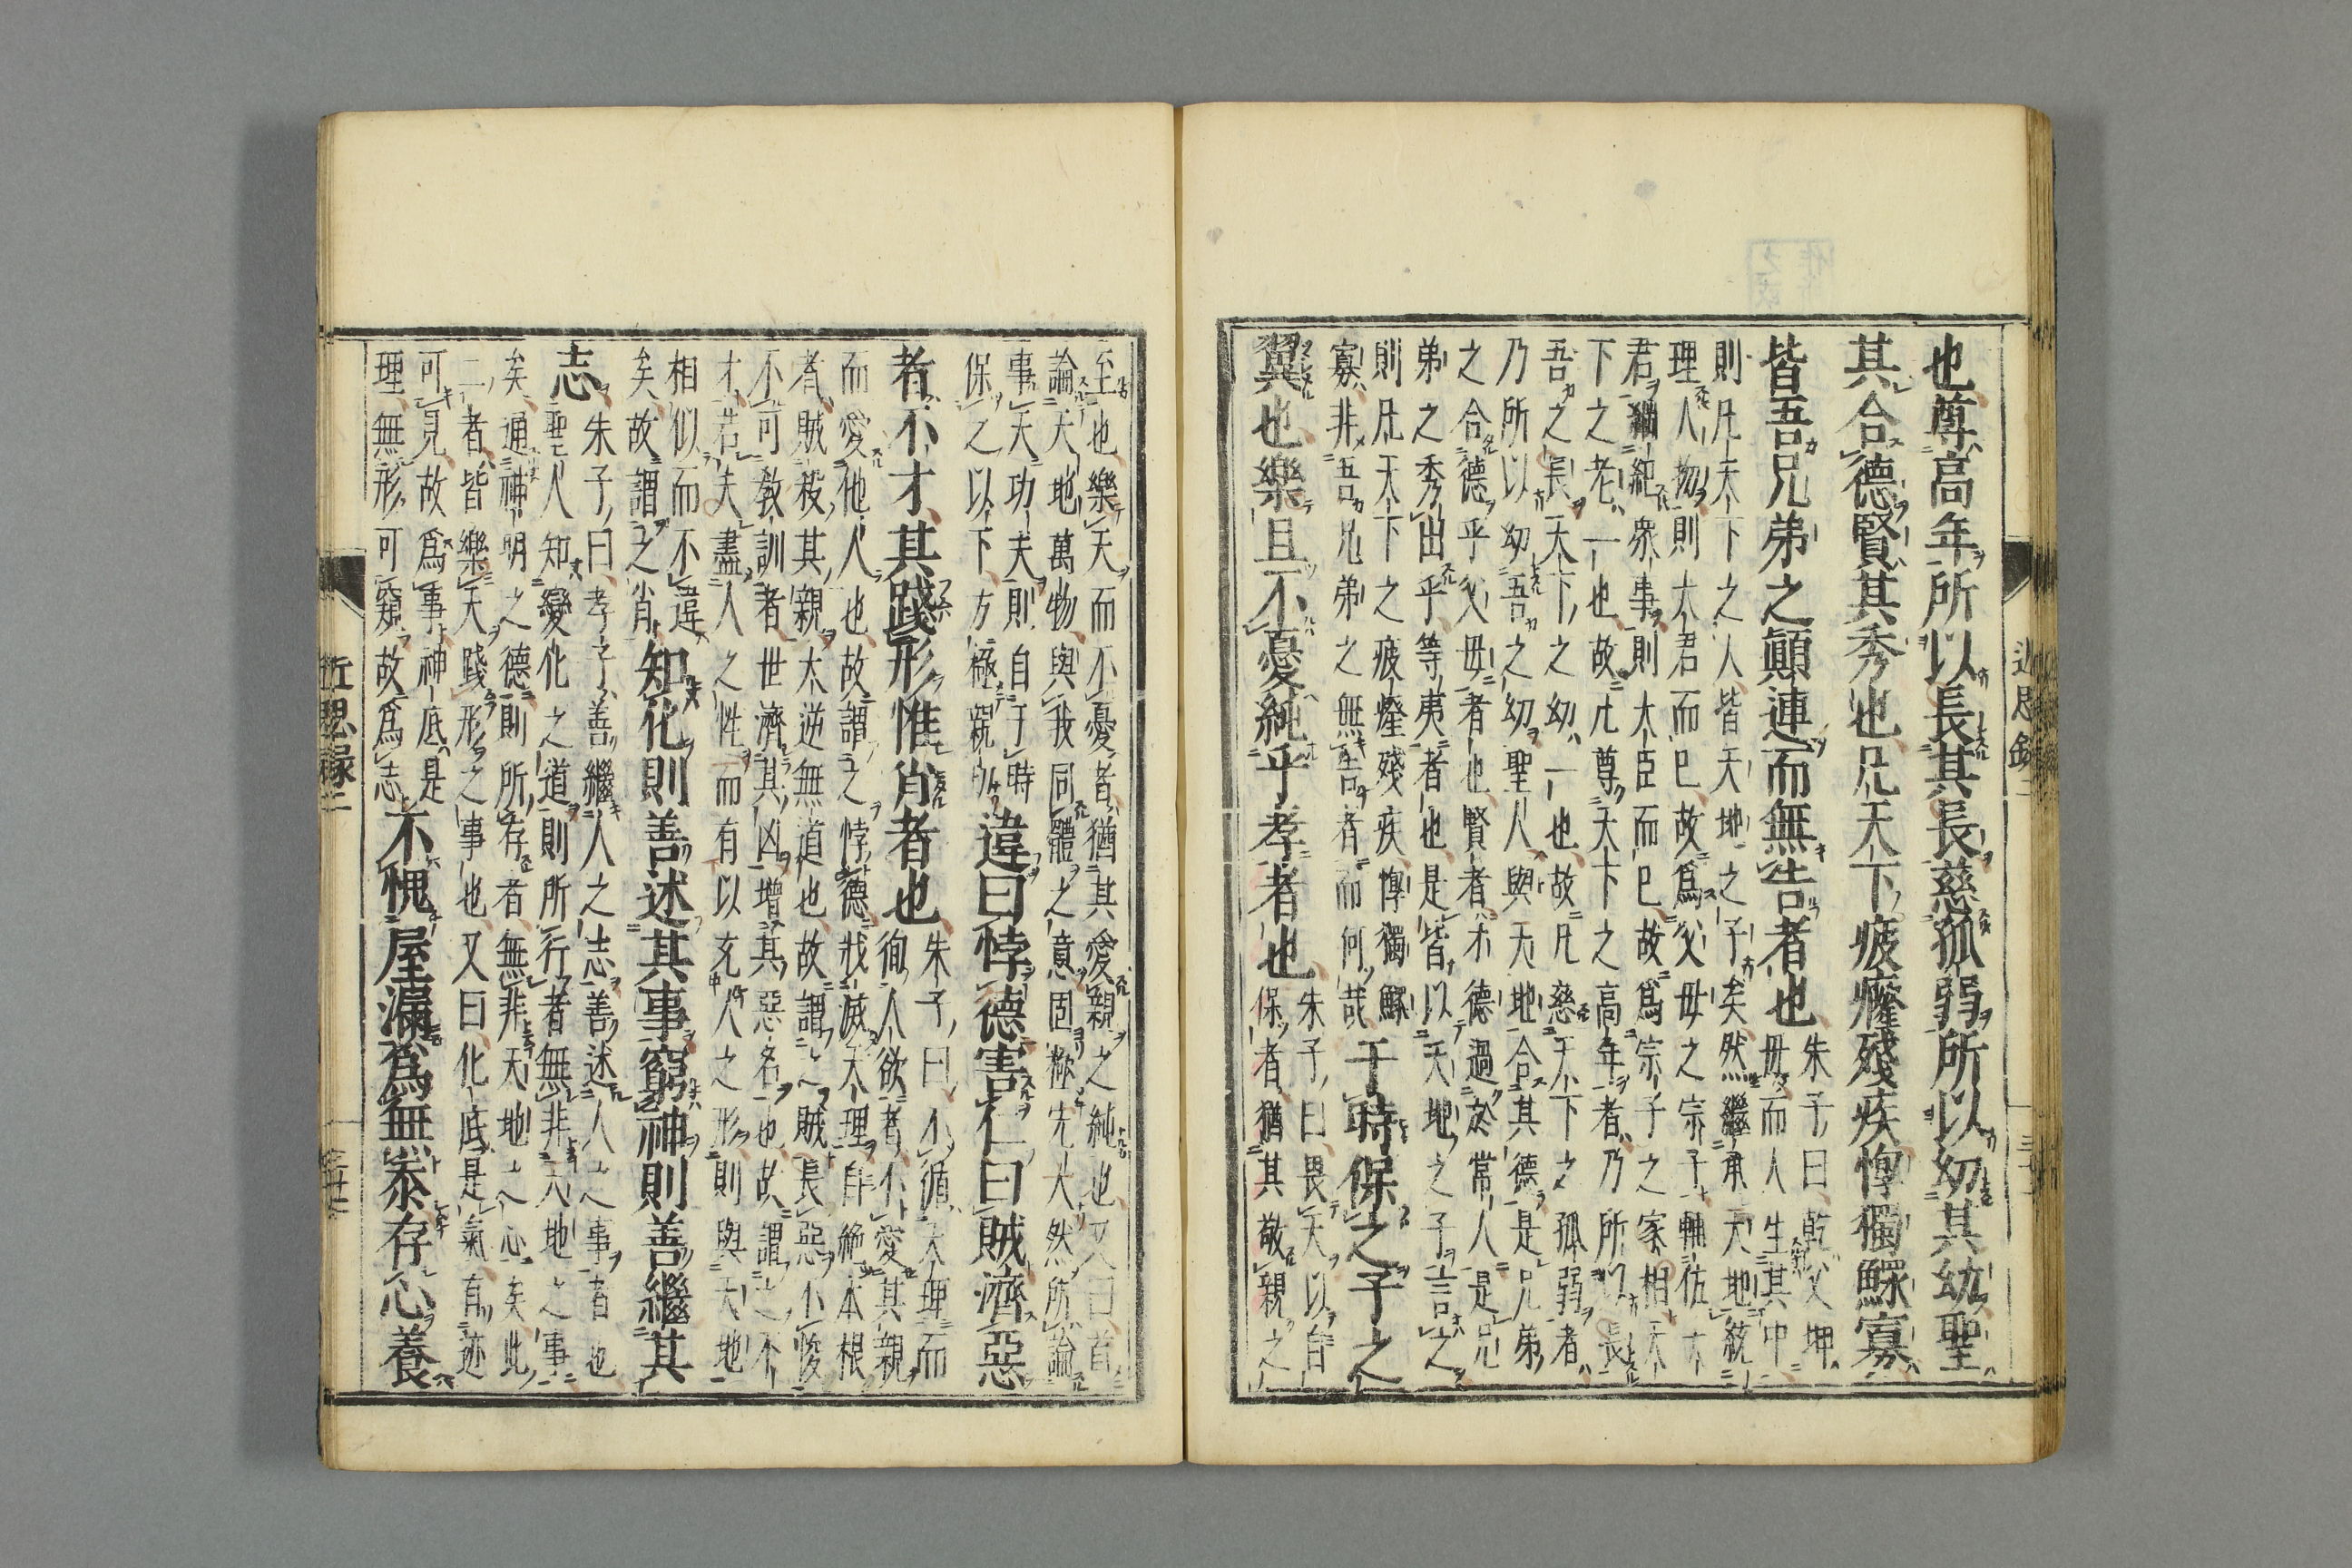 也尊高年所以長其長慈孤弱所以幼其幼聖
其合德賢其秀也凡天下疲癃殘疾惸獨鰥寡
皆吾兄弟之顛連而無告者也
朱子曰乾父坤
母而人生其中
則凡天下之人皆天地之子矣然繼承天地統
理人物則大君而已故爲父母之宗子輔佐大
君綱紀衆事則大臣而已故爲宗子之家相天
下之老一也故凡尊天下之高年者乃所以長
吾之長天下之幼一也故凡慈天下之孤弱者
乃所以幼吾之幼聖人與天地合其德是兄弟
之合德乎父母者也賢者才德過於常人是兄
弟之秀出乎等夷者也是皆以天地之子言之
則凡天下之疲癃殘疾惸獨鰥
寡非吾兄弟之無告者而何哉
于時保之子之
翼也樂且不憂純乎孝者也
朱子曰畏天以自
保者猶其敬親之
至也樂天而不憂者猶其愛親之純也又曰首
論天地萬物與我同體之意固極宏大然所論
事天功夫則自于時
保之以下方極親切
違曰悖德害仁曰賊濟惡
者不才其踐形惟肖者也
朱子曰不循天理而
徇人欲者不愛其親
而愛他人也故謂之悖德戕滅天理自絶本根
者賊殺其親大逆無道也故謂之賊長惡不悛
不可敎訓者世濟其凶增其惡名也故謂之不
才若夫盡人之性而有以充人之形則與天地
相似而不違
矣故謂之肖
知化則善述其事窮神則善繼其
志
朱子曰孝子善繼人之志善述人之事者也
聖人知變化之道則所行者無非天地之事
矣通神明之德則所存者無非天地之心矣此
二者皆樂天踐形之事也又曰化底是氣有迹
可見故爲事神底是
理無形可窺故爲志
不愧屋漏爲無忝存心養
近思錄二